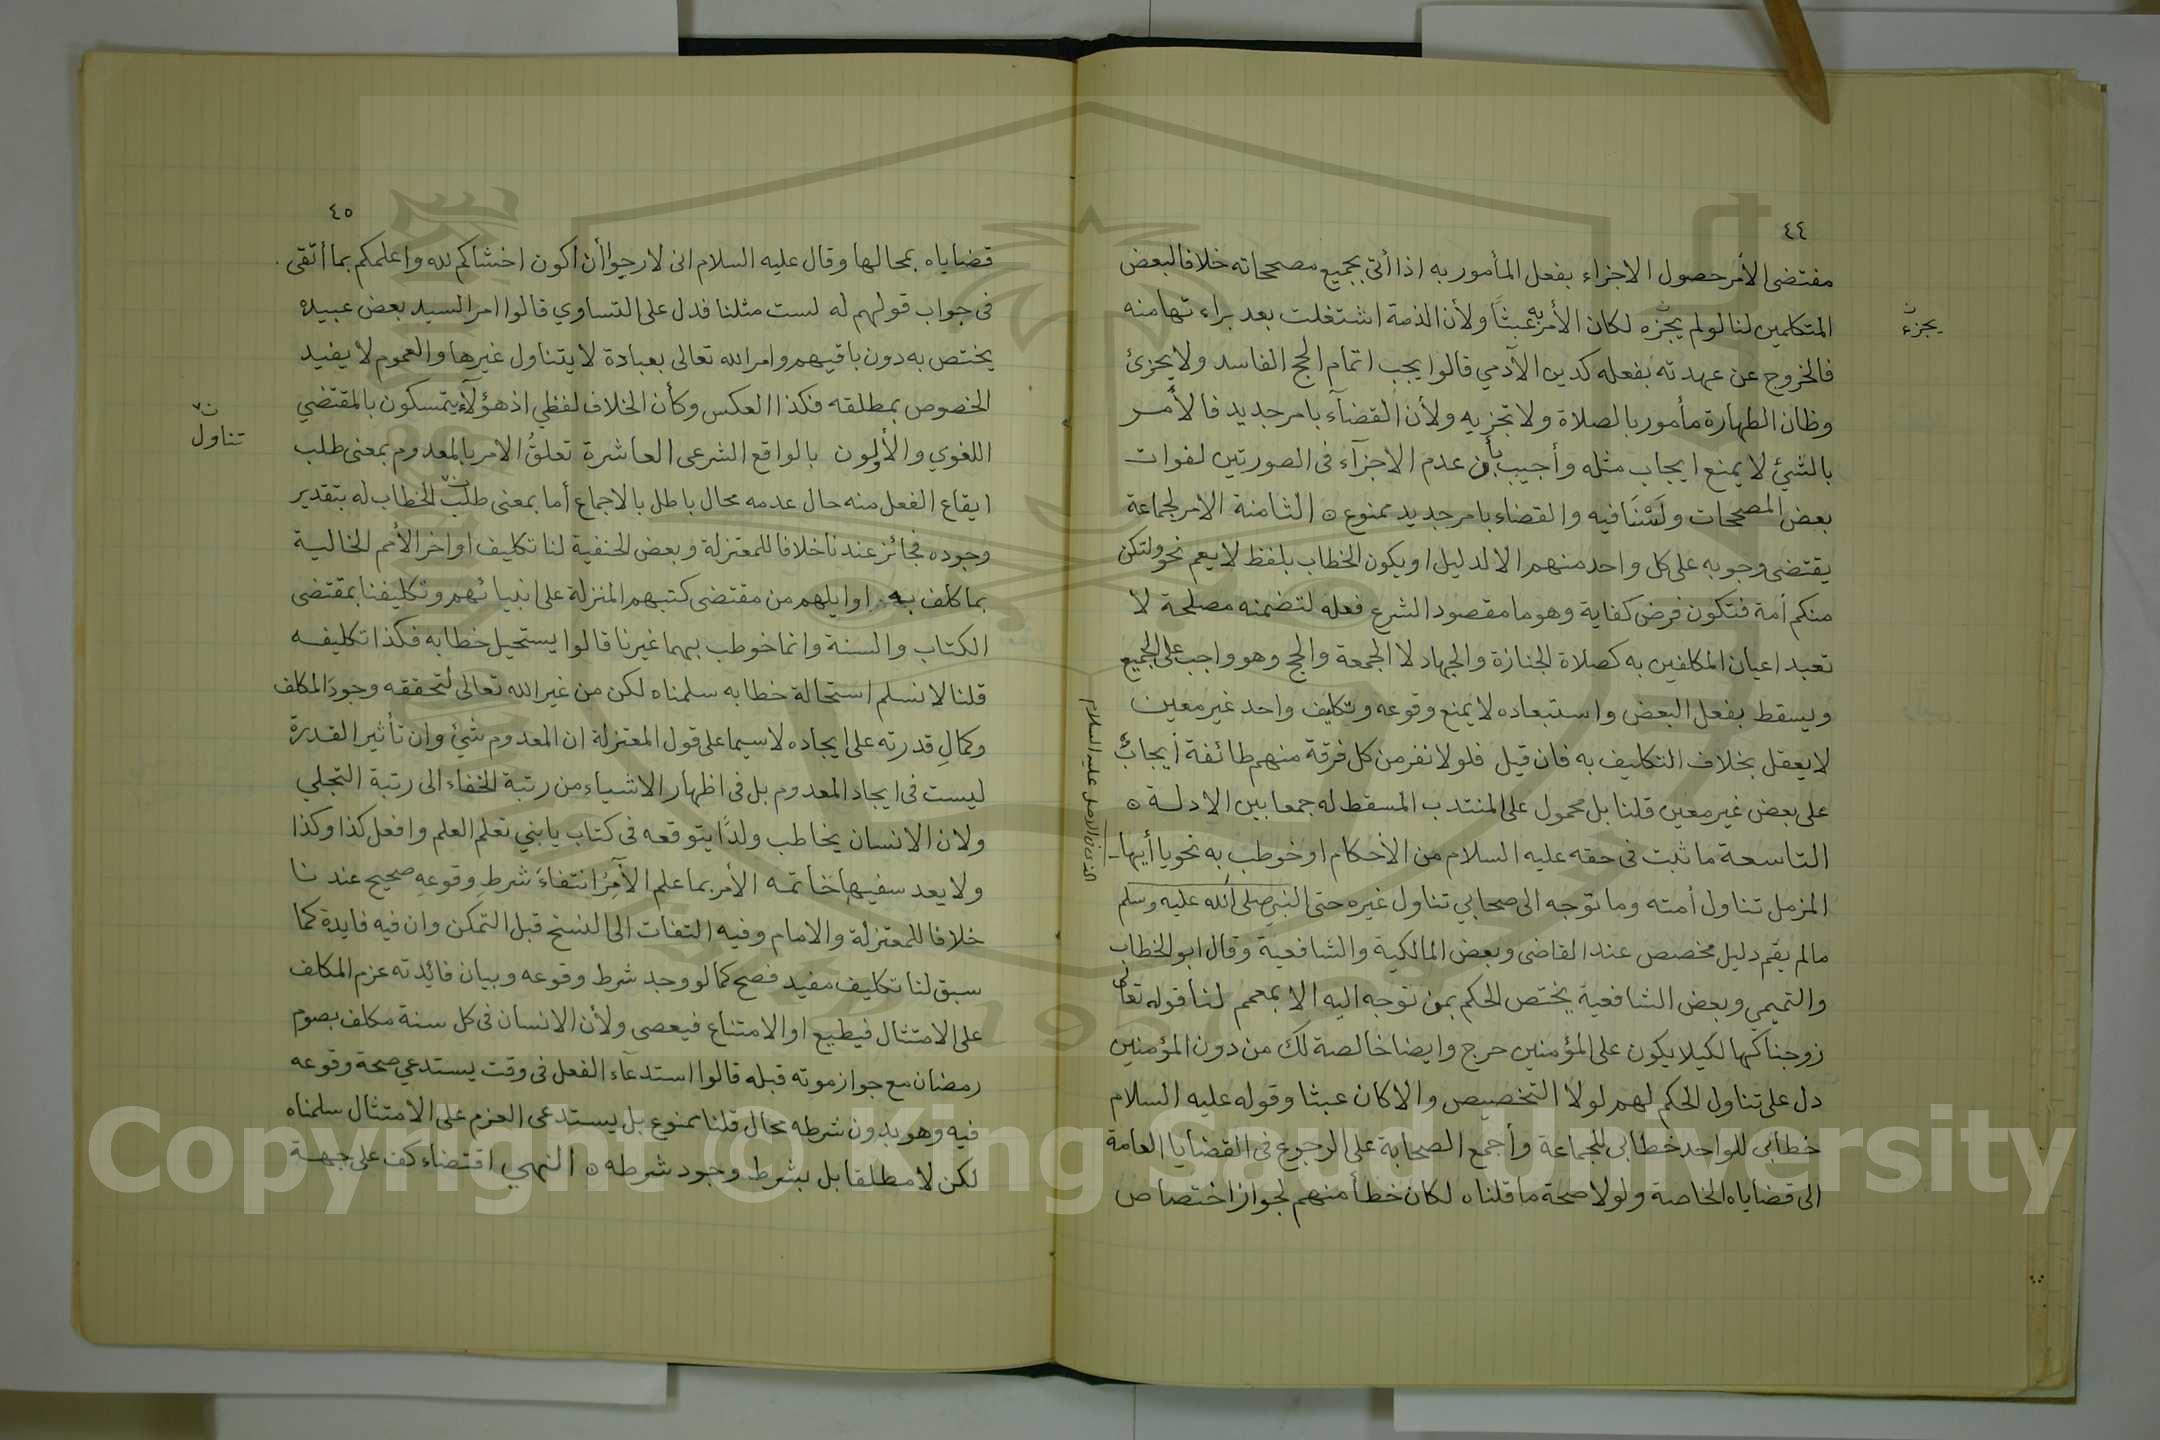 ٤٤
مقتضى الأمر حصول الاجزاء بفعل المأمور به اذا أتى بجميع مصححاته خلافا لبعض
المتكلمين لنا لو لم يجزه لكان الأمر به عبثًا ولأن الذمة اشتغلت بعد براءتها منه
يجزئ
فالخروج عن عهدته بفعله كدين الآدمي قالوا يجب اتمام الحج الفاسد ولا يجزئ
وظان الطهارة مأمور بالصلاة ولا تجزيه ولأن القضآء بامر جديد فالأمر
بالشيئ لا يمنع ايجاب مثله وأجيب بأن عدم الاجزآء فى الصورتين لفوات
بعض المصححات ولَسْنَا فيه والقضاء بامر جديد ممنوع ٥ الثامنة الامر لجماعة
يقتضى وجوبه على كل واحد منهم الا لدليل او يكون الخطاب بلفظ لا يعم نحو ولتكن
منكم أمة فتكون فرض كفاية وهو ما مقصود الشرع فعله لتضمنه مصلحة لا
تعبد اعيان المكلفين به كصلاة الجنازة والجهاد لا الجمعة والحج وهو واجب على الجميع
ويسقط بفعل البعض واستبعاده لا يمنع وقوعه وتكليف واحد غير معين
لا يعقل بخلاف التكليف به فان قيل فلولا نفر من كل فرقة منهم طائفة أيجابٌ
على بعض غير معين قلنا بل محمول على المنتدب المسقط له جمعا بين الادلة ٥
التاسعة ما ثبت فى حقه عليه السلام من الأحكام او خوطب به نحو يا أيها
المزمل تناول أمته وما توجه الى صحابي تناول غيره حتى النبي صلى الله عليه وسلم
الذى فى الاصل عليه السلام
ما لم يقم دليل مخصص عند القاضى وبعض المالكية والشافعية وقال ابو الخطاب
والتميمي وبعض الشافعية يختص الحكم بمن توجه اليه الا بمعمم لنا قوله تعالى
زوجناكها لكيلا يكون على المؤمنين حرج وايضا خالصة لك من دون المؤمنين
دل على تناول الحكم لهم لولا التخصيص والا كان عبثا وقوله عليه السلام
خطابى للواحد خطابى للجماعة وأجمع الصحابة على الرجوع فى القضايا العامة
الى قضاياه الخاصة ولولا صحة ما قلناه لكان خطأ منهم لجواز اختصاص
٤٥
قضاياه بمحالها وقال عليه السلام انى لارجوا أن اكون اخشاكم لله واعلمكم بما أتقى
فى جواب قولهم له لست مثلنا فدل على التساوي قالوا امر السيد بعض عبيده
يختص به دون باقيهم وامر الله تعالى بعبادة لا يتناول غيرها والعموم لا يفيد
الخصوص بمطلقه فكذا العكس وكأن الخلاف لفظي اذ هؤلآء يتمسكون بالمقتضي
تناول
اللغوي والأولون بالواقع الشرعى العاشرة تعلقُ الامر بالمعدوم بمعنى طلب
ايقاع الفعل منه حال عدمه محال باطل بالاجماع أما بمعنى طلب الخطاب له بتقدير
وجوده فجائز عندنا خلافا للمعتزلة وبعض الحنفية لنا تكليف اواخر الأمم الخالية
بما كلف به اوايلهم من مقتضى كتبهم المنزلة على انبيائهم وتكليفنا بمقتضى
الكتاب والسنة وانما خوطب بهما غيرنا قالوا يستحيل خطابه فكذا تكليفه
قلنا لا نسلم استحالة خطابه سلمناه لكن من غير الله تعالى لتحققه وجودَ المكلف
وكمالِ قدرته على ايجاده لاسيما على قول المعتزلة ان المعدوم شيئ وان تأثير القدرة
ليست فى ايجاد المعدوم بل فى اظهار الاشياء من رتبة الخفاء الى رتبة التجلي
ولان الانسان يخاطب ولدًا يتوقعه فى كتاب يا بني تعلم العلم وافعل كذا وكذا
ولا يعد سفيها خاتمه الأمر بما علم الآمِرُ انتفاءَ شرطِ وقوعهِ صحيح عندنا
خلافا للمعتزلة والامام وفيه التفات الى النسخ قبل التمكن وان فيه فايدة كما
سبق لنا تكليف مفيد فصح كما لو وجد شرط وقوعه وبيان فائدته عزم المكلف
على الامتثال فيطيع او الامتناع فيعصى ولأن الانسان فى كل سنة مكلف بصوم
رمضان مع جواز موته قبله قالوا استدعآء الفعل فى وقت يستدعي صحة وقوعه
فيه وهو بدون شرطه محال قلنا ممنوع بل يستدعى العزم على الامتثال سلمناه
لكن لا مطلقا بل بشرط وجود شرطه ٥ النهي اقتضاء كف على جهة
Copyright © King Saud University